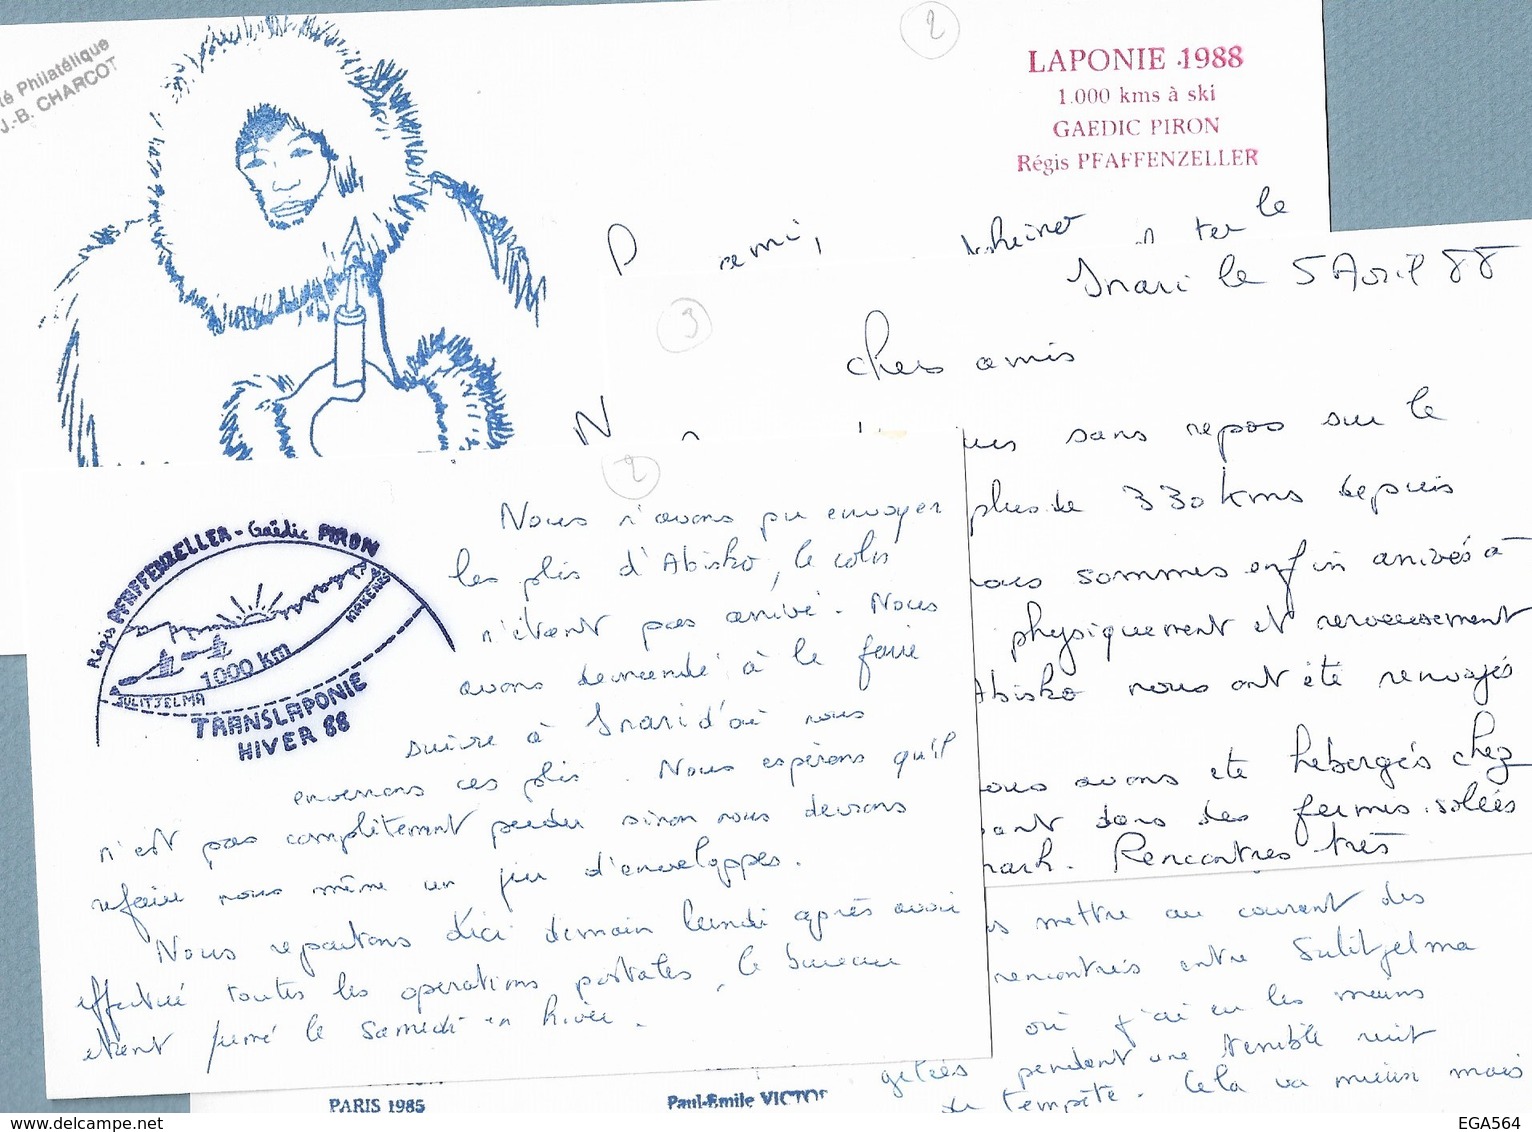 té Philatélique
J.-B. CHARCOT
2
LAPONIE 1988
1.000 kms à ski
GAEDIC PIRON
Régis PFAFFENZELLER
le
Inari le 5 Avril 88
3
Chers amis
N
ues sans repos sur le
plus de 330 kms depuis
nous sommes enfin arrivés à
physiquement et nerveusement
Abisko nous ont été renvoyés
ous avons été hébergés chez
dans des fermes isolées
mark. Rencontres très
2
Régis PFAFFENZELLER - Gaëdic PIRON
1000 km
SULITJELMA
TRANSLAPONIE
HIVER 88
Nous n'avons pu envoyer
les plis d'Abisko, le colis
n'étant pas arrivé. Nous
avons demandé à le faire
suivre à Inari d'où nous
enverrons ces plis. Nous espérons qu'il
n'est pas complètement perdu sinon nous devrons
refaire nous même un jeu d'enveloppes.
Nous repartons d'ici demain lundi après avoir
effectué toutes les opérations postales, le bureau
étant fermé le Samedi en hiver.
mettre au courant des
rencontres entre Sulitjelma
où j'ai eu les mains
gelées pendant une terrible nuit
de tempête. Cela va mieux mais
PARIS 1985
Paul-Emile VICTOR
EGA564